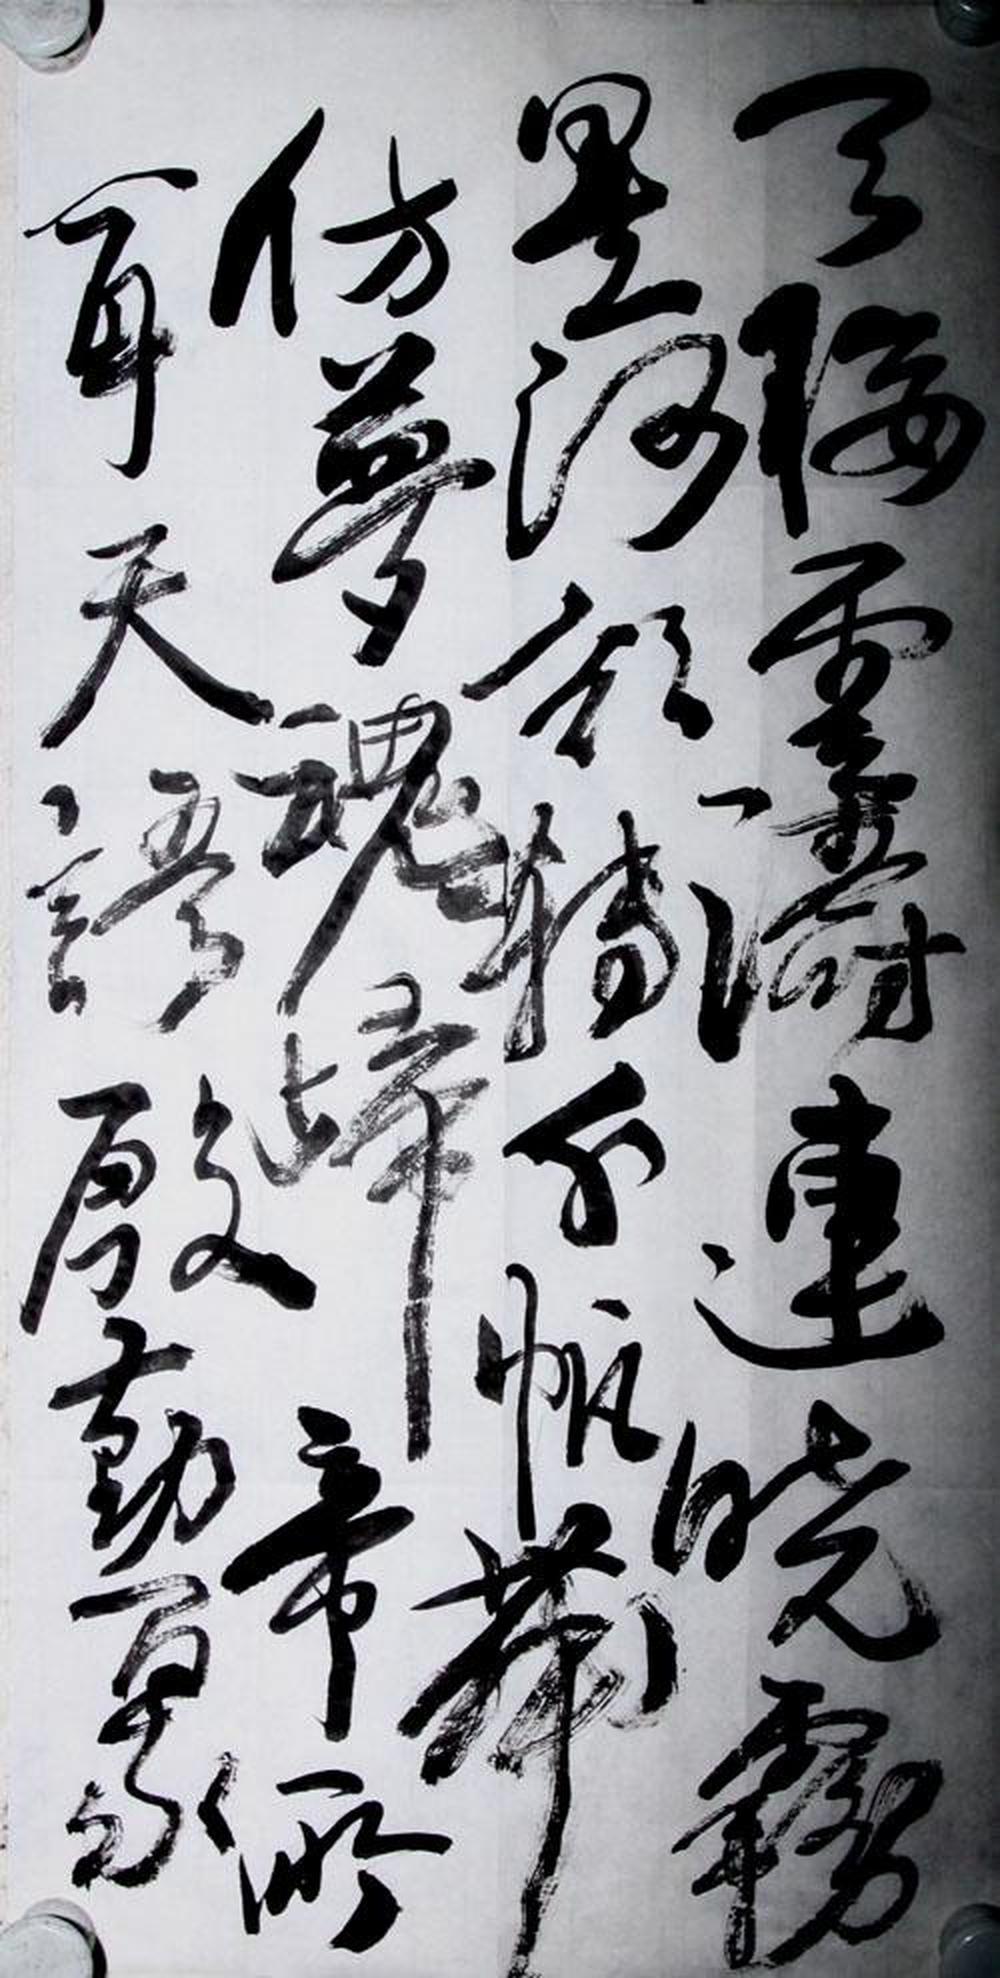 天接雲濤連曉霧
星河欲轉千帆舞
仿夢魂歸帝所
聞天語殷勤